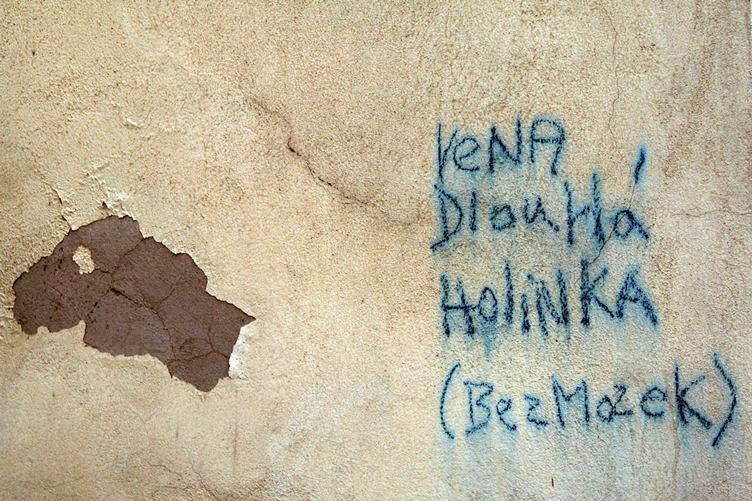 VeNA
DlouHá
HolinKA
(BezMozek)